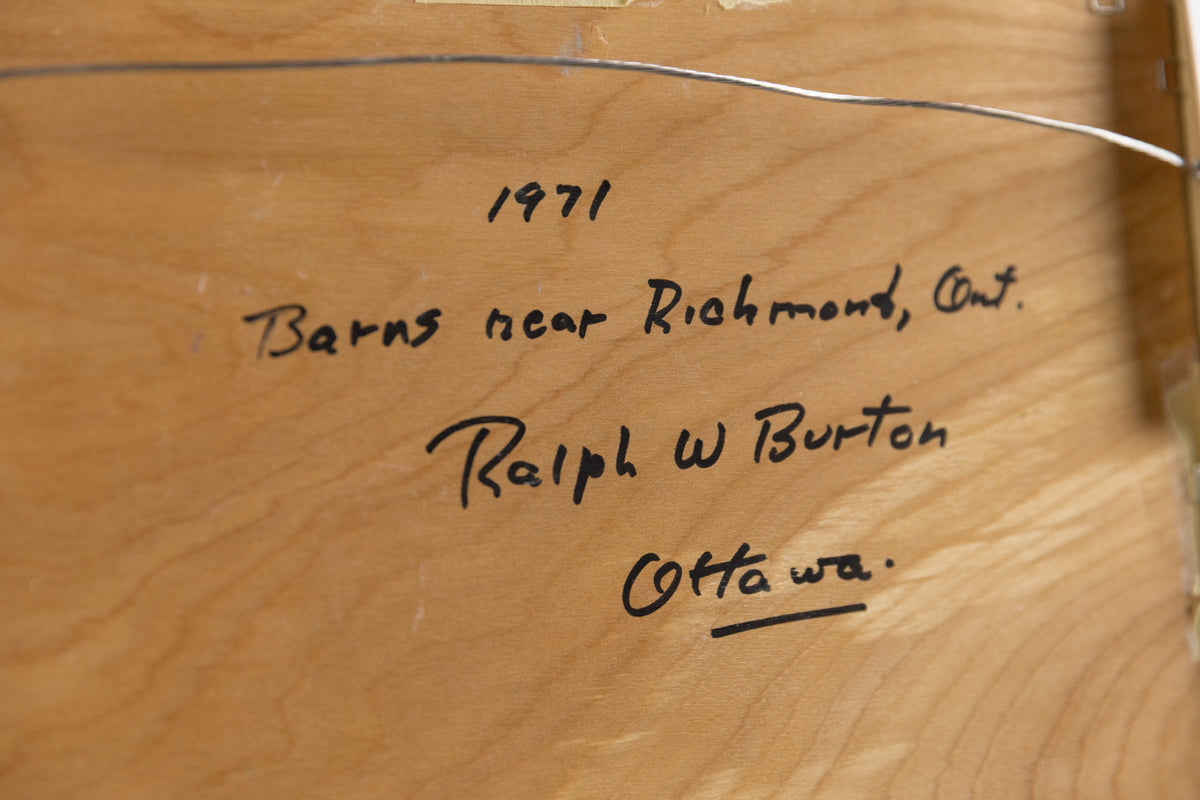 1971
Barns near Richmond, Ont.
Ralph W Burton
Ottawa.